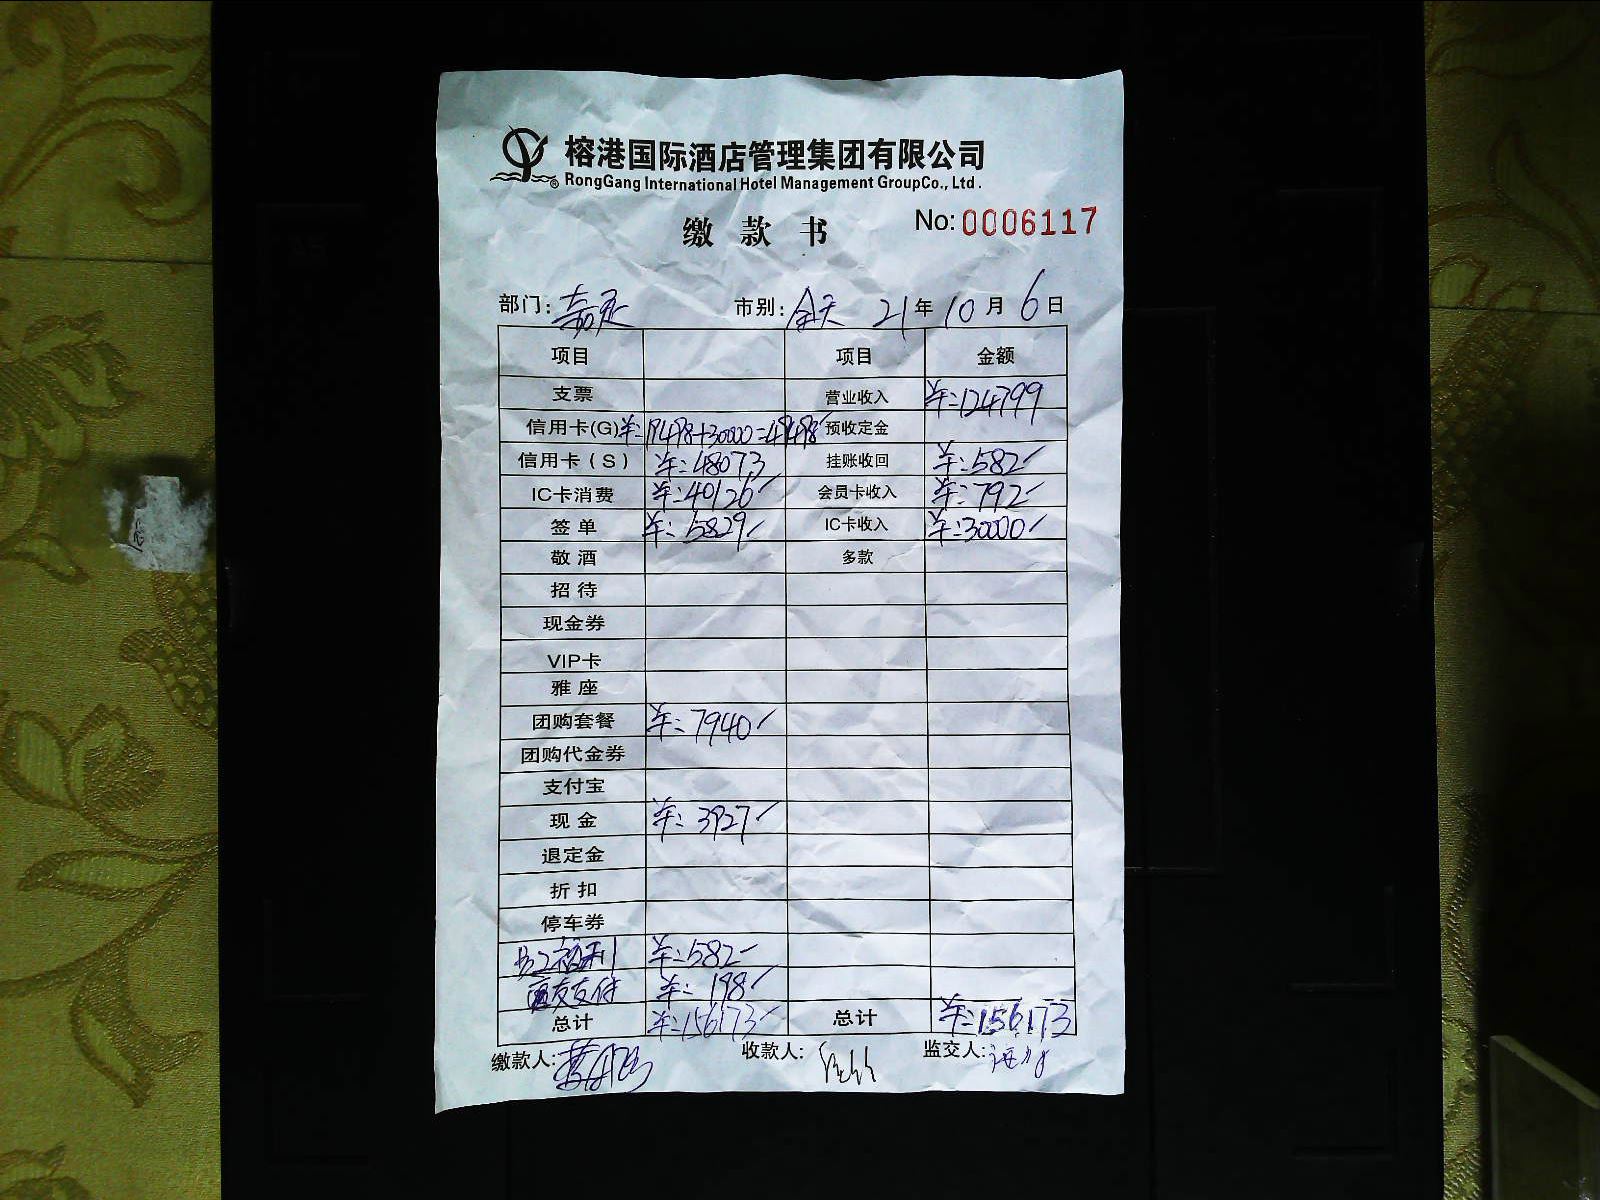 榕港国际酒店管理集团有限公司
RongGang International Hotel Management GroupCo., Ltd.
缴款书 No:0006117
部门: 市别: 全天 21年 10月 6日
项目 项目 金额
支票 营业收入 ¥:124799
信用卡(G) ¥:19498+30000=49498 预收定金
信用卡(S) ¥:48073 挂账收回 ¥:582
IC卡消费 ¥:40126 会员卡收入 ¥:792
签单 ¥:5829 IC卡收入 ¥:30000
敬酒 多款
招待
现金券
VIP卡
雅座
团购套餐 ¥:7940
团购代金券
支付宝
现金 ¥:3927
退定金
折扣
停车券
员工福利 ¥:582
支付 ¥:198
总计 ¥:156173 总计 ¥:156173
缴款人: 收款人: 监交人: